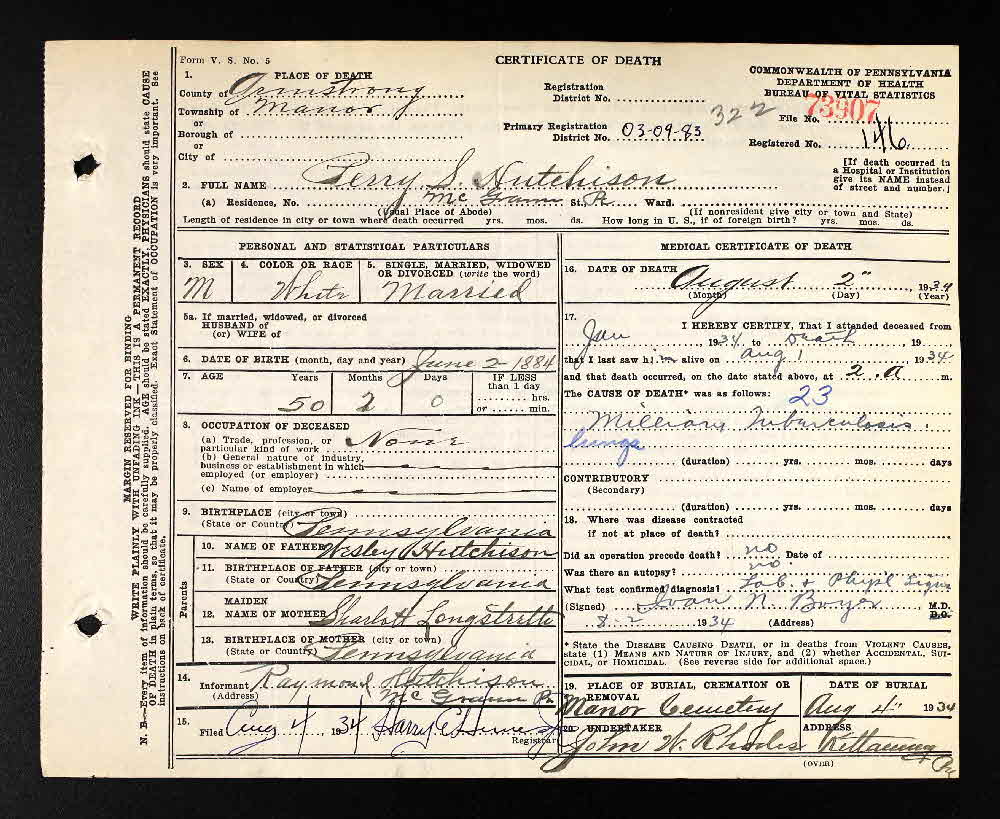 Form V. S. No. 5
CERTIFICATE OF DEATH
COMMONWEALTH OF PENNSYLVANIA
DEPARTMENT OF HEALTH
BUREAU OF VITAL STATISTICS
1. PLACE OF DEATH
County of Armstrong
Township of Manor
or
Borough of
or
City of
Registration
District No.
Primary Registration
District No. 03-09-83
322
File No. 73907
Registered No. 146
[If death occurred in
a Hospital or Institution
give its NAME instead
of street and number.]
2. FULL NAME Perry S. Hutchison
(a) Residence, No. McGrann St. Pa Ward.
(Usual Place of Abode)
(If nonresident give city or town and State)
Length of residence in city or town where death occurred yrs. mos. ds. How long in U. S., if of foreign birth? yrs. mos. ds.
PERSONAL AND STATISTICAL PARTICULARS
3. SEX
M
4. COLOR OR RACE
White
5. SINGLE, MARRIED, WIDOWED
OR DIVORCED (write the word)
Married
5a. If married, widowed, or divorced
HUSBAND of
(or) WIFE of
6. DATE OF BIRTH (month, day and year) June 2 1884
7. AGE Years Months Days IF LESS
than 1 day
hrs.
or min.
50 2 0
8. OCCUPATION OF DECEASED
(a) Trade, profession, or
particular kind of work None
(b) General nature of industry,
business or establishment in which
employed (or employer)
(c) Name of employer
9. BIRTHPLACE (city or town)
(State or Country) Pennsylvania
Parents
10. NAME OF FATHER Wesley Hutchison
11. BIRTHPLACE OF FATHER (city or town)
(State or Country) Pennsylvania
12. MAIDEN
NAME OF MOTHER Sharlott Longstretto
13. BIRTHPLACE OF MOTHER (city or town)
(State or Country) Pennsylvania
14. Informant Raymond Hutchison
(Address) McGrann Pa
15. Filed Aug 4 1934 Harry
Registrar
MEDICAL CERTIFICATE OF DEATH
16. DATE OF DEATH August 2" 1934
(Month) (Day) (Year)
17. I HEREBY CERTIFY, That I attended deceased from
Jan 1934 to Death 19
that I last saw him alive on Aug 1 1934
and that death occurred, on the date stated above, at 2. a m.
The CAUSE OF DEATH* was as follows: 23
Milliary Tuberculosis
lungs
(duration) yrs. mos. days
CONTRIBUTORY
(Secondary)
(duration) yrs. mos. days
18. Where was disease contracted
if not at place of death?
Did an operation precede death? no Date of
Was there an autopsy? no.
What test confirmed diagnosis? Lab. + Phys'l Signs
(Signed) Ivan N. Boyer M.D.
D.O.
8-2 1934 (Address)
* State the DISEASE CAUSING DEATH, or in deaths from VIOLENT CAUSES,
state (1) MEANS AND NATURE OF INJURY, and (2) whether ACCIDENTAL, SUI-
CIDAL, or HOMICIDAL. (See reverse side for additional space.)
19. PLACE OF BURIAL, CREMATION OR
REMOVAL
Manor Cemetery
DATE OF BURIAL
Aug 4" 1934
20. UNDERTAKER
John W. Rhodes
ADDRESS
Kittanning Pa
(OVER)
MARGIN RESERVED FOR BINDING
WRITE PLAINLY WITH UNFADING INK—THIS IS A PERMANENT RECORD
N. B.—Every item of information should be carefully supplied. AGE should be stated EXACTLY. PHYSICIANS should state CAUSE
OF DEATH in plain terms, so that it may be properly classified. Exact Statement of OCCUPATION is very important. See
instructions on back of certificate.